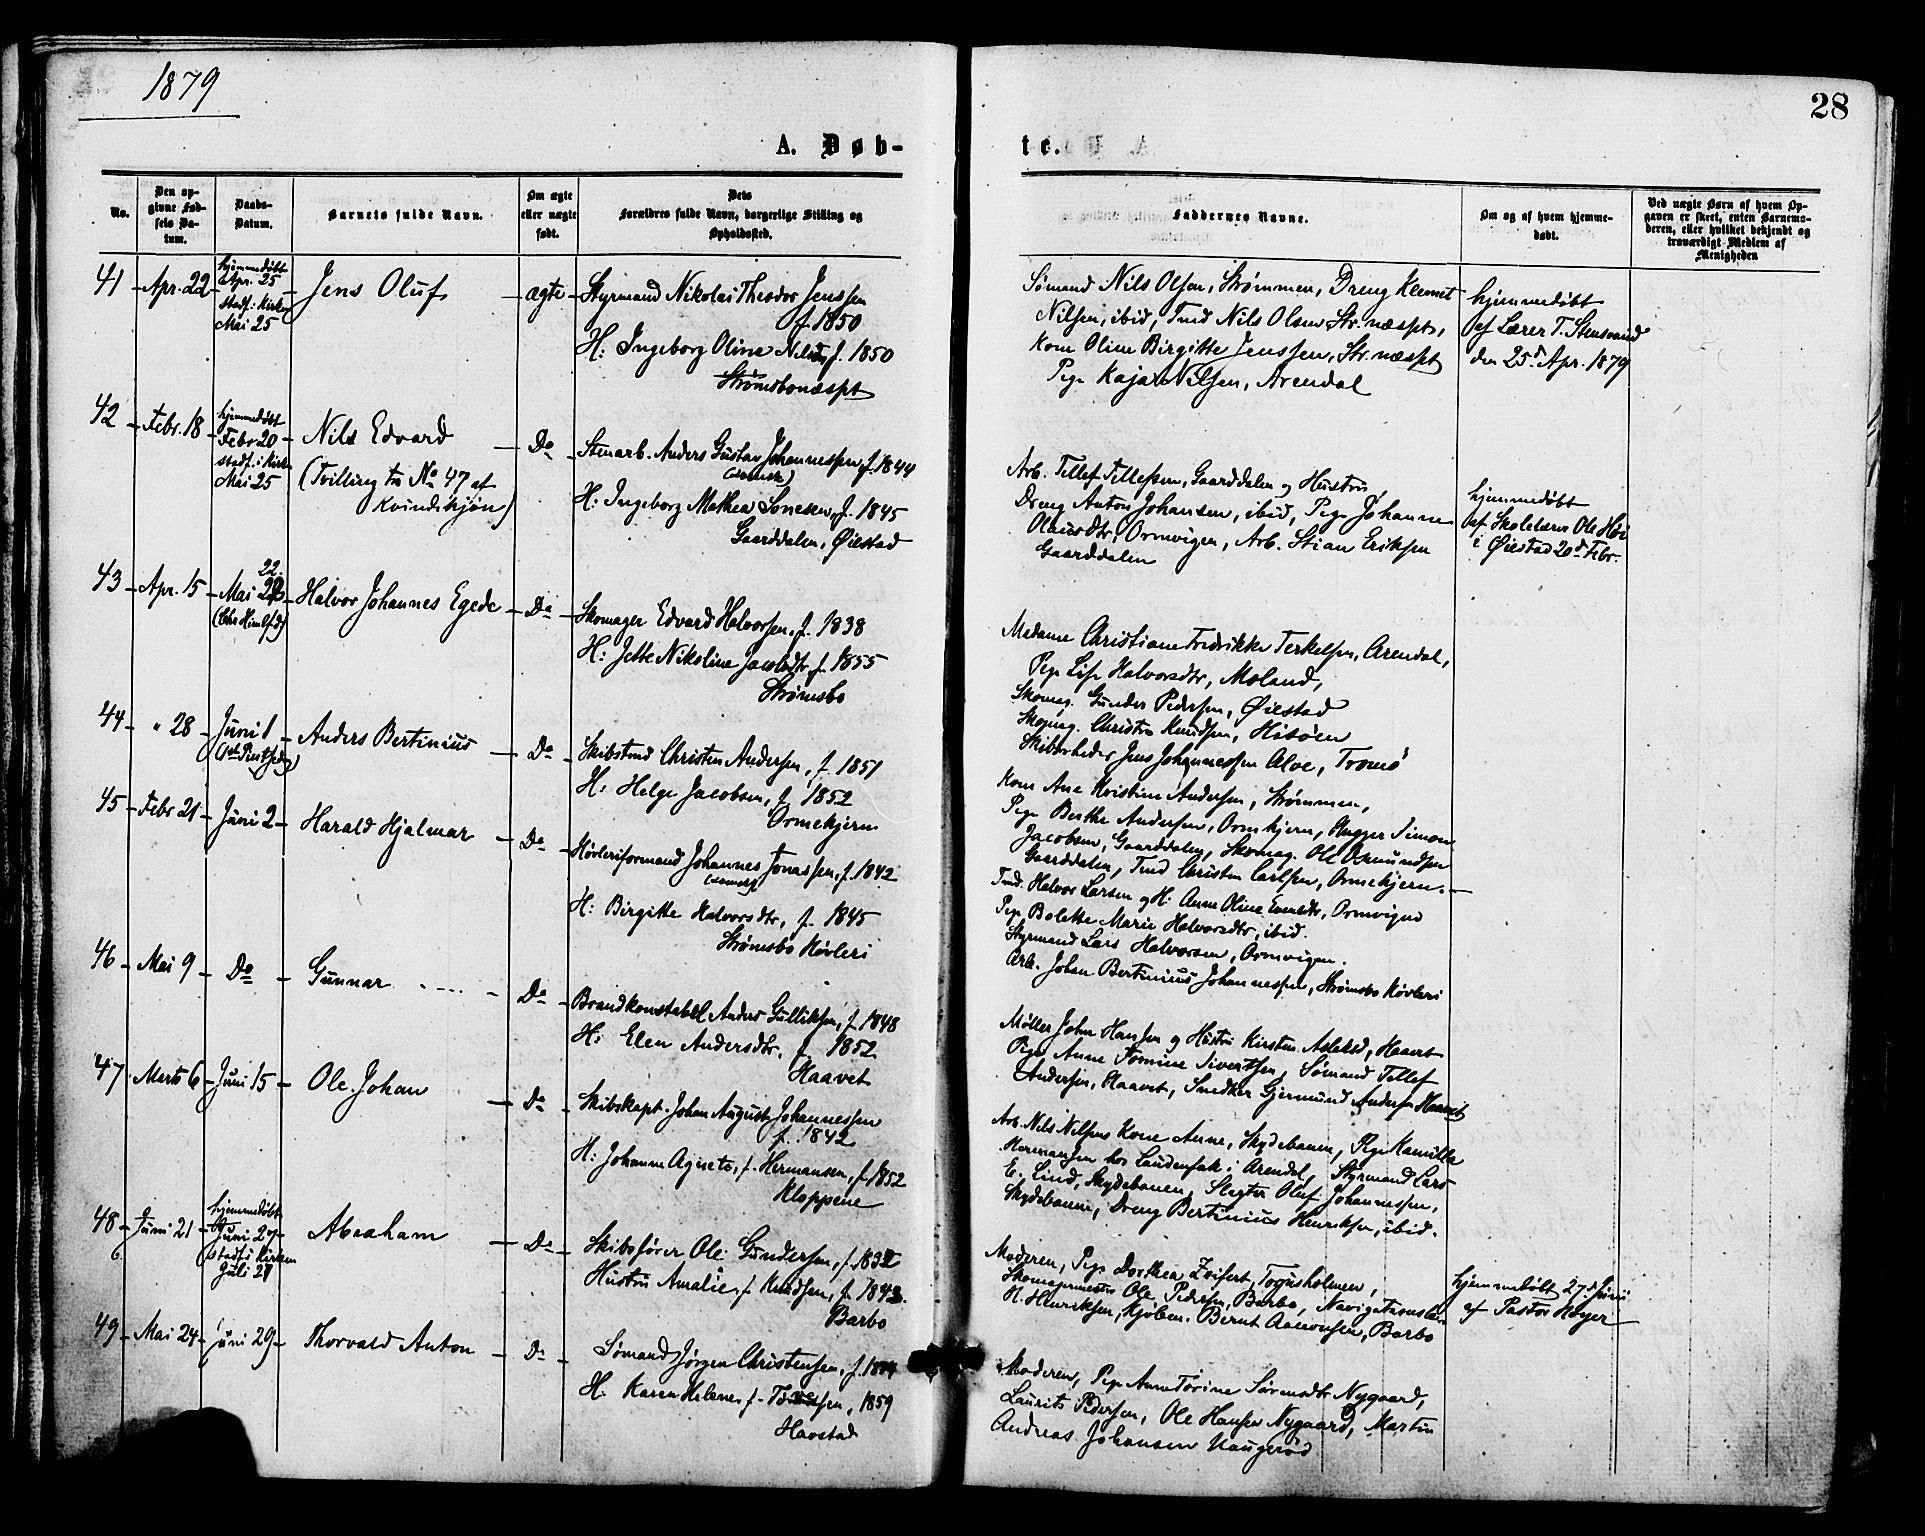 1879
28
A. Døb-
te.
No.
Den op-
givne Fød-
sels Da-
tum.
Daabs-
Datum.
Barnets fulde Navn.
Om ægte
eller uægte
født.
Dets
Forældres fulde Navn, borgerlige Stilling og
Opholdssted.
Faddernes Navne.
Om og af hvem hjemme-
døbt.
Ved uægte Børn af hvem Op-
gaven er skeet, enten Barnemo-
deren, eller hvilket bekjendt og
troværdigt Medlem af
Menigheden
41 Apr. 22
hjemmedøbt
Apr. 25
stadf. i Kirken
Mai 25
Jens Oluf
ægte
Styrmand Nikolai Theodor Jenssen
f. 1850
H: Ingeborg Oline Nilsen f. 1850
Strømsbonæspt
Sømand Nils Olsen, Strømmen, Dreng Klemet
Nilsen, ibid, Tmd Nils Olsen Str.næspt,
Kone Oline Birgitte Jenssen, Str.næspt
Pige Kaja Nilsen, Arendal
hjemmedøbt
af Lærer T. Stensvand
den 25d Apr. 1879
42 Febr. 18
hjemmedøbt
Febr 20
stadf. i Kirk
Mai 25
Nils Edvard
(Tvilling tu No 47 af
Kvindekjøn)
Do
Stenarb. Anders Gustav Johannessen, f. 1844
(svensk)
H: Ingeborg Mathea Sonesen, f. 1845
Gaarddalen, Øiestad
Arb. Tellef Tellefsen, Gaarddalen og Hustru,
Dreng Anton Johansen, ibid, Pige Johanne
Olausdtr, Ormvigen, Arb. Stian Eriksen
Gaarddalen
hjemmedøbt
af Skolelærer Ole Hei
i Øiestad 20d Febr.
43 Apr. 15
22.
Mai
(Chr Himlfd)
Halvor Johannes Egede
Do
Skomager Edvard Halvorsen, f. 1838
H: Jette Nikoline Jacobsdtr f. 1855
Strømsbo
Madame Christiane Fredrikke Terkelsen, Arendal,
Pige Lise Halvorsdtr, Moland,
Skomag. Gunder Pedersen, Øiestad
Skomag. Christen Knudsen, Hisøen
Skibsrheder Jens Johannessen Alve, Tromø
44 " 28
Juni 1
(1st Pintsedag)
Anders Bertinius
Do
Skibstmd Christen Andersen, f. 1851
H: Helge Jacobsen, f. 1852
Ormekjern
Kone Ane Kristine Andersen, Strømmen,
Pige Berthe Andersen, Ormkjern, Hugger Simon
Jacobsen, Gaarddalen, Skomag. Ole Osmundsen
Gaarddalen, Tmd Christen Carlsen, Ormekjern.
45 Febr 21
Juni 2
Harald Hjalmar
Do
Høvleriformand Johannes Jonassen, f. 1842
(svensk)
H: Birgitte Halvorsdtr, f. 1845
Strømsbo Høvleri
Tmd. Halvor Larsen og H: Anne Oline Evensdtr, Ormvigen
Pige Bolette Marie Halvorsdtr, ibid.
Styrmand Lars Halvorsen, Ormvigen.
Arb. Johan Bertinius Johannessen, Strømsbo Høvleri
46 Mai 9
Do
Gunnar
Do
Brandkonstabel Anders Gulliksen, f. 1848
H: Elen Andersdtr, f. 1852
Haavet
Møller John Hansen og Hustru Kirsten Aslaksd, Haavet
Pige Anne Tomine Sivertsen, Sømand Tellef
Andersen, Haavet, Snedker Gjermund Andersen Haavet
47 Marts 6
Juni 15
Ole Johan
Do
Skibskapt. Johan August Johannessen
f. 1842
H: Johanne Agnete, f. Hermansen, f. 1852
Kloppene
Arb. Nils Nilsens Kone Anne, Skydebanen, Pige Kamilla
Hermansen hos Laudenfak i Arendal, Styrmand Lars
E. Lind, Skydebanen, Slagter Oluf Johannessen,
Skydebanen, Dreng Bertinius Henriksen, ibid.
48 Juni 21
hjemmedøbt
Juni 27
stadf. i Kirken
Juli 27
Abraham
Do
Skibsfører Ole Gundersen, f. 1832
Hustru Amalie f. Knudsen, f. 1843.
Barbo
Moderen, Pige Dorthea Zeifert, Tognsholmen,
Skomagermester Ole Pedersen, Barbo, Navigationslærer
H. Henriksen, Kjøbm. Bernt Aanonsen, Barbo
hjemmedøbt 27d Juni
af Pastor Høyer
49 Mai 24
Juni 29
Thorvald Anton
Do
Sømand Jørgen Christensen, f.
H: Karen Helene f. , 1859
Havstad
Moderen, Pige Anne Torine Sørensdtr Nygaard,
Laurits Pedersen, Ole Hansen Nygaard, Martin
Andreas Johansen Haugerød